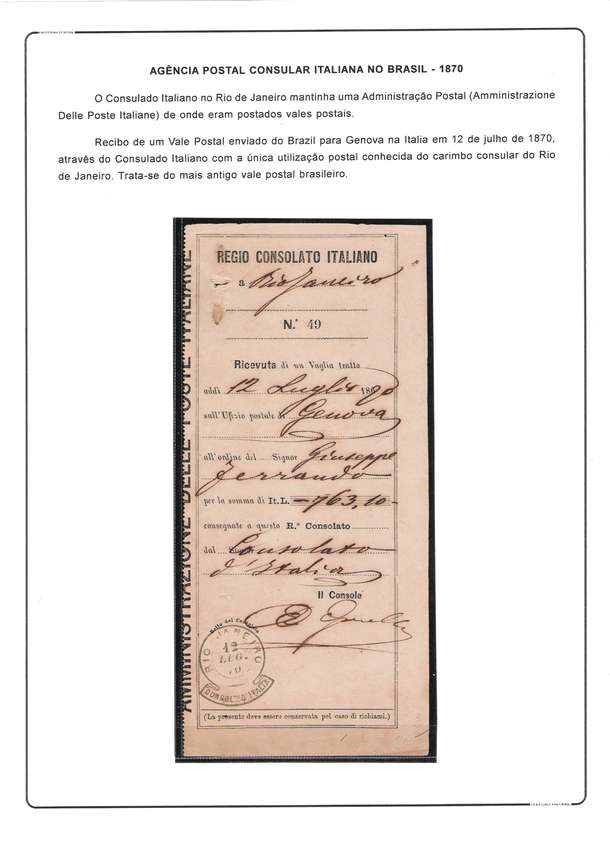 AGÊNCIA POSTAL CONSULAR ITALIANA NO BRASIL - 1870
O Consulado Italiano no Rio de Janeiro mantinha uma Administração Postal (Amministrazione
Delle Poste Italiane) de onde eram postados vales postais.
Recibo de um Vale Postal enviado do Brazil para Genova na Italia em 12 de julho de 1870,
através do Consulado Italiano com a única utilização postal conhecida do carimbo consular do Rio
de Janeiro. Trata-se do mais antigo vale postal brasileiro.
AMMINISTRAZIONE DELLE POSTE ITALIANE
REGIO CONSOLATO ITALIANO
a Rio Janeiro
N.° 49
Ricevuta di un Vaglia tratto
addì 12 Luglio 1870
sull'Ufizio postale di Genova
all'ordine del Signor Giuseppe
Ferrando
per la somma di It.L. =763,10-
consegnate a questo R.° Consolato
dal Consolato
d'Italia
Il Console
Bollo del Consolato
RIO JANEIRO
12
LUG.
70
CONSOLTO ITALIA
(La presente deve essere conservata pel caso di richiami.)